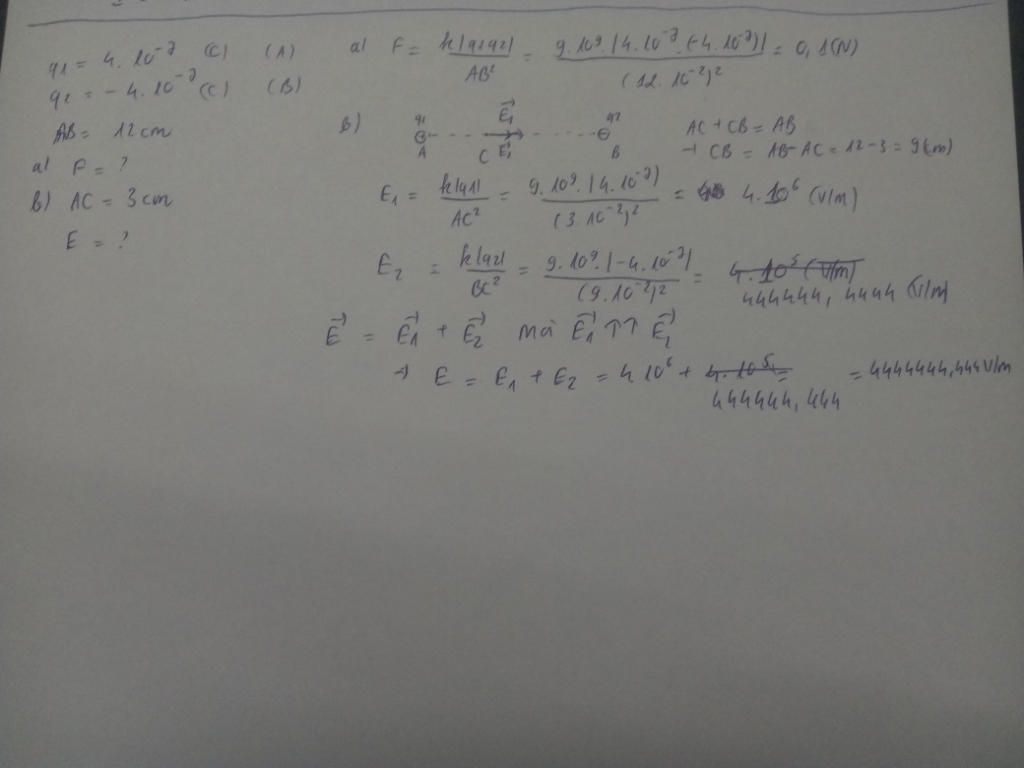 q1 = 4. 10⁻⁷ (C) (A)
q2 = - 4. 10⁻⁷ (C) (B)
AB = 12 cm
a) F = ?
b) AC = 3 cm
E = ?
a) F = k|q1q2| / AB² = 9.10⁹.|4.10⁻⁷.(-4.10⁻⁷)| / (12.10⁻²)² = 0,1(N)
b) q1 E₁→ q2
A C E₁→ B
AC + CB = AB
→ CB = AB - AC = 12 - 3 = 9(cm)
E₁ = k|q1| / AC² = 9.10⁹.|4.10⁻⁷| / (3.10⁻²)² = 4.10⁶ (V/m)
E₂ = k|q2| / BC² = 9.10⁹.|-4.10⁻⁷| / (9.10⁻²)² = 4.10⁵ (V/m)
444444,4444 (V/m)
E→ = E₁→ + E₂→ mà E₁→ ↑↑ E₂→
→ E = E₁ + E₂ = 4.10⁶ + 4.10⁵ = = 4444444,444 V/m
444444,444